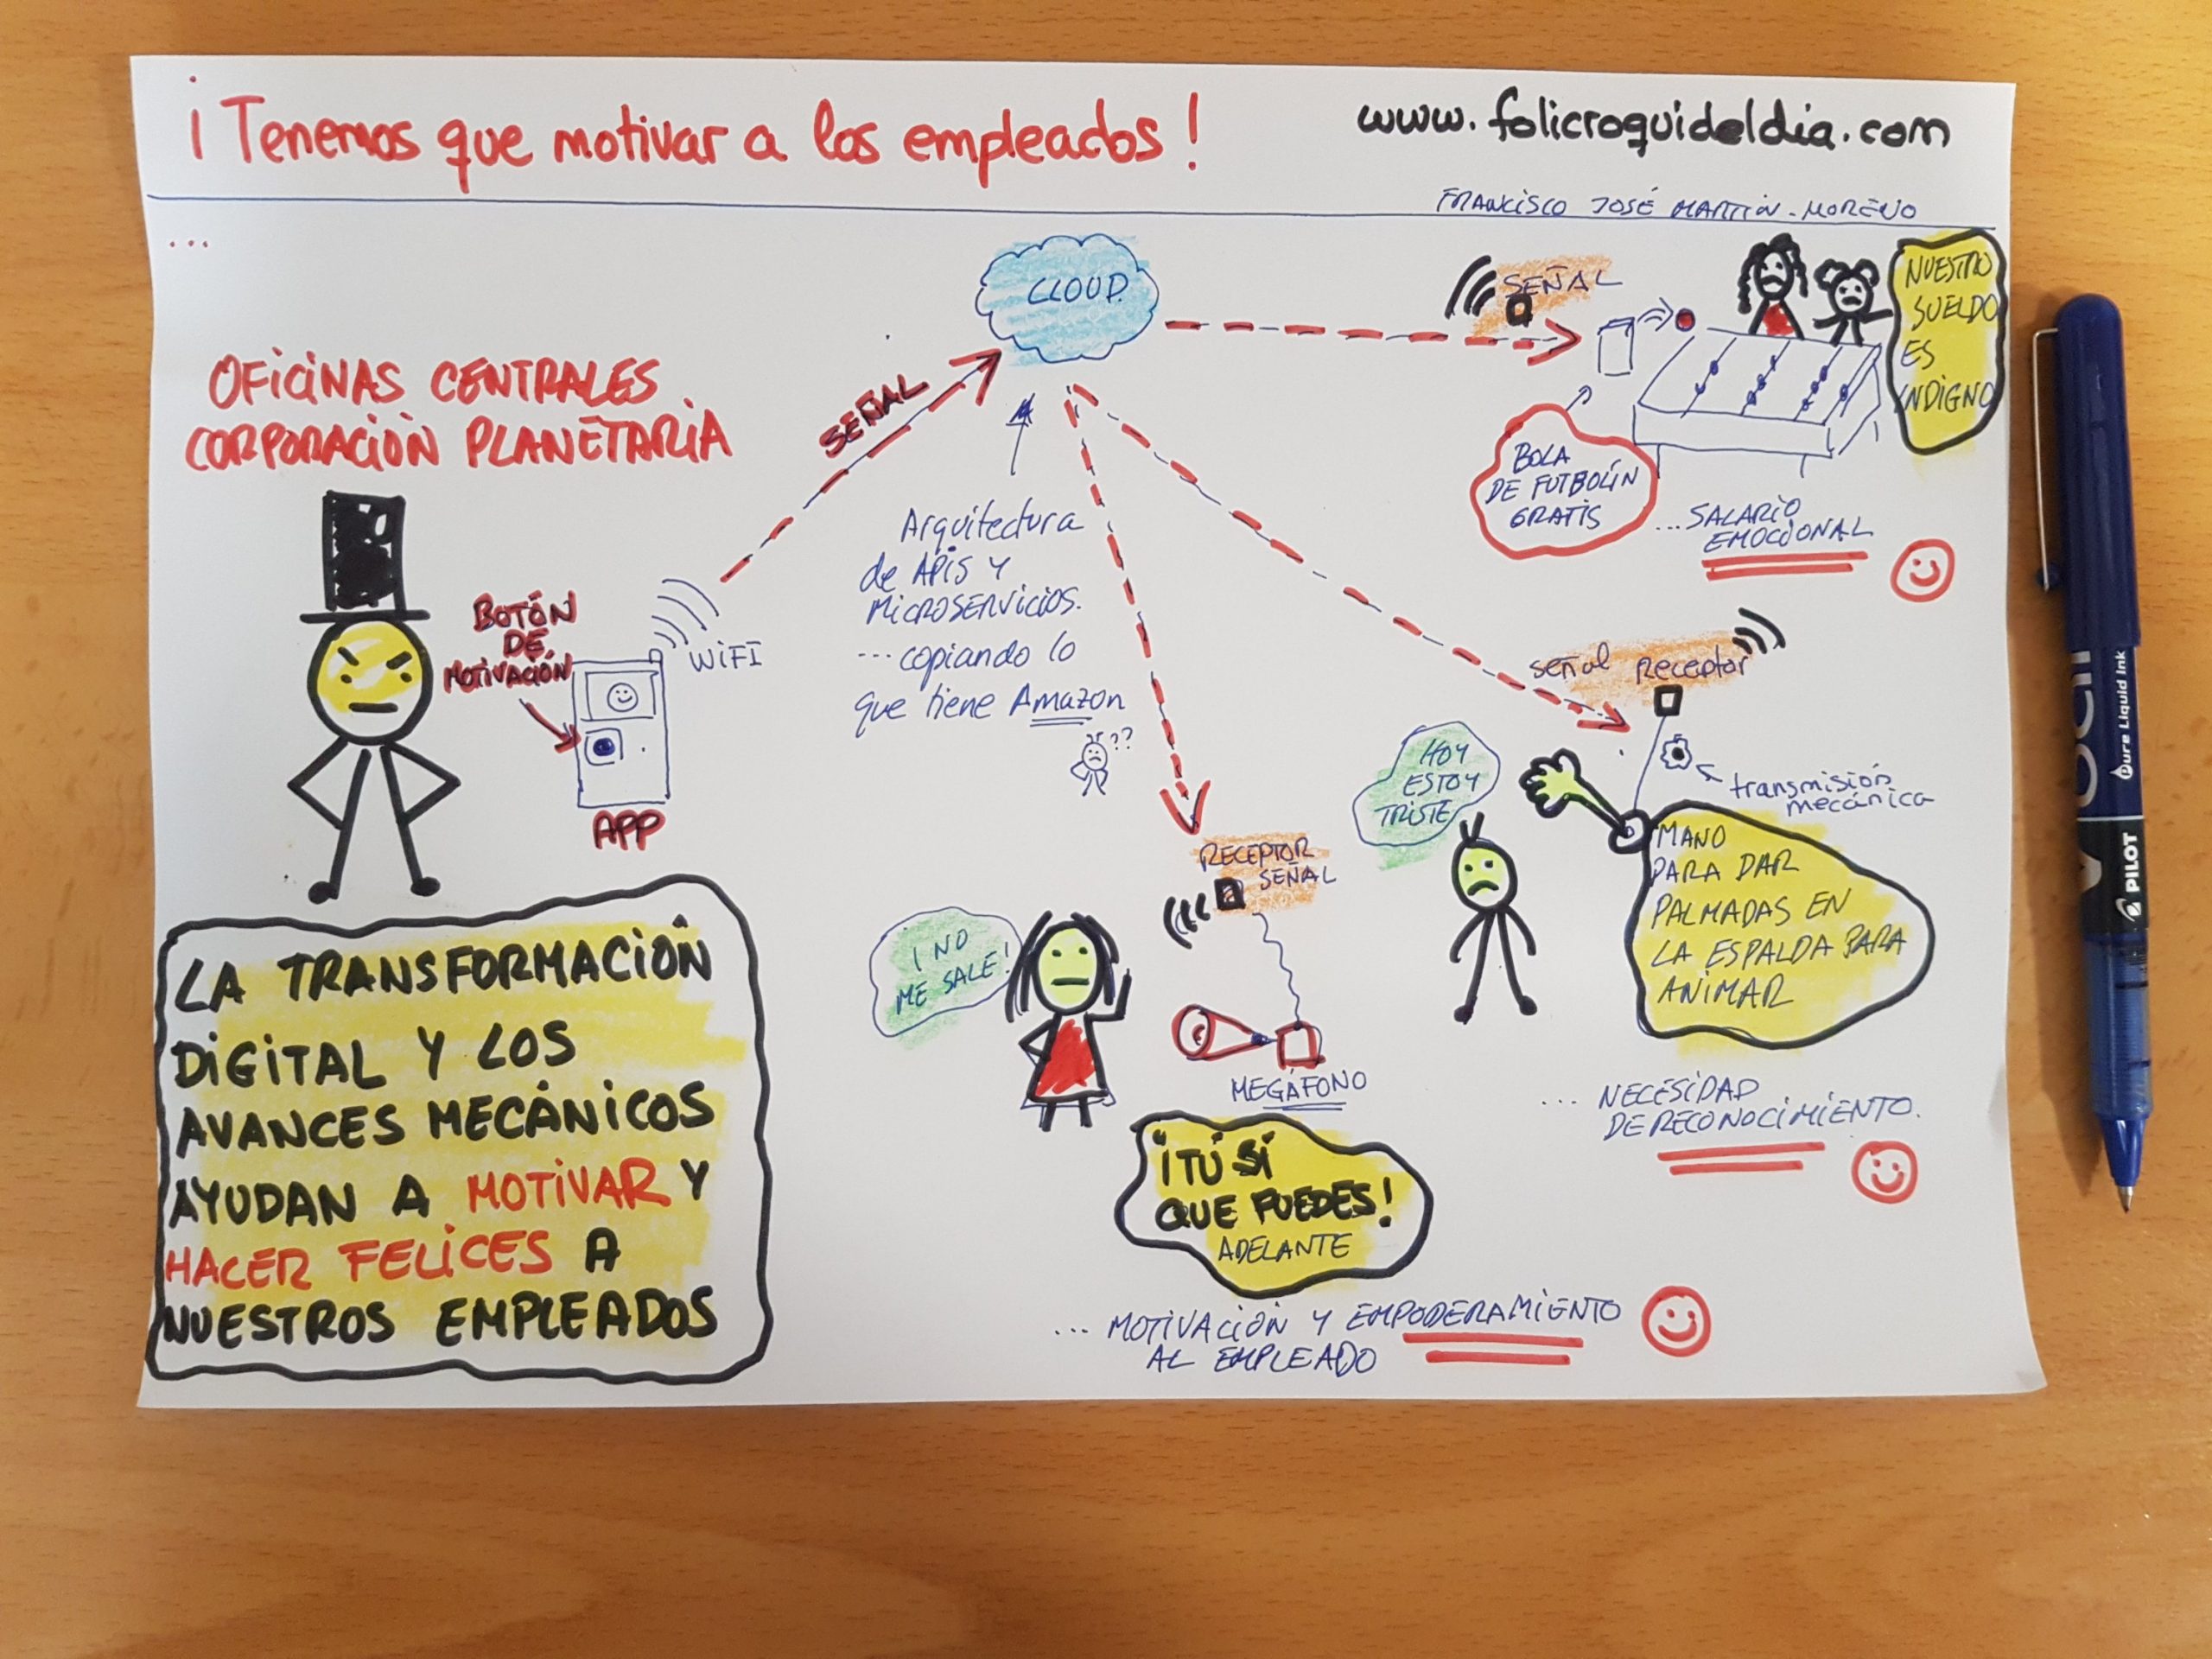 ¡Tenemos que motivar a los empleados!
www.folicroquideldia.com
FRANCISCO JOSÉ MARTÍN-MORENO
...
OFICINAS CENTRALES
CORPORACIÓN PLANETARIA
BOTÓN
DE
MOTIVACIÓN
WIFI
APP
SEÑAL
CLOUD
Arquitectura
de APIS y
MICROSERVICIOS.
...copiando lo
que tiene Amazon
??
SEÑAL
NUESTRO
SUELDO
ES
INDIGNO
BOLA
DE FUTBOLÍN
GRATIS
...SALARIO
EMOCIONAL
señal Receptor
transmisión
mecánica
HOY
ESTOY
TRISTE
MANO
PARA DAR
PALMADAS EN
LA ESPALDA PARA
ANIMAR
... NECESIDAD
DE RECONOCIMIENTO.
RECEPTOR
SEÑAL
¡NO
ME SALE!
MEGÁFONO
¡TÚ SÍ
QUE PUEDES!
ADELANTE
... MOTIVACIÓN Y EMPODERAMIENTO
AL EMPLEADO
LA TRANSFORMACIÓN
DIGITAL Y LOS
AVANCES MECÁNICOS
AYUDAN A MOTIVAR Y
HACER FELICES A
NUESTROS EMPLEADOS
Pure Liquid Ink
PILOT